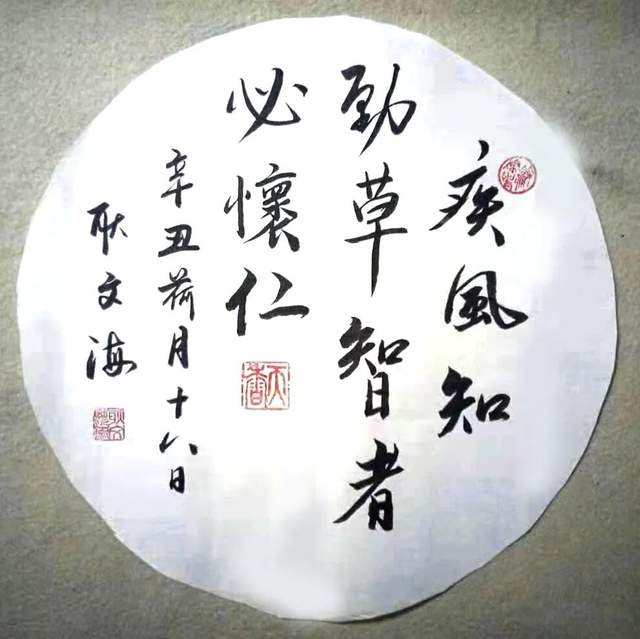 疾風知
勁草智者
必懷仁
辛丑荷月十八日
耿文海